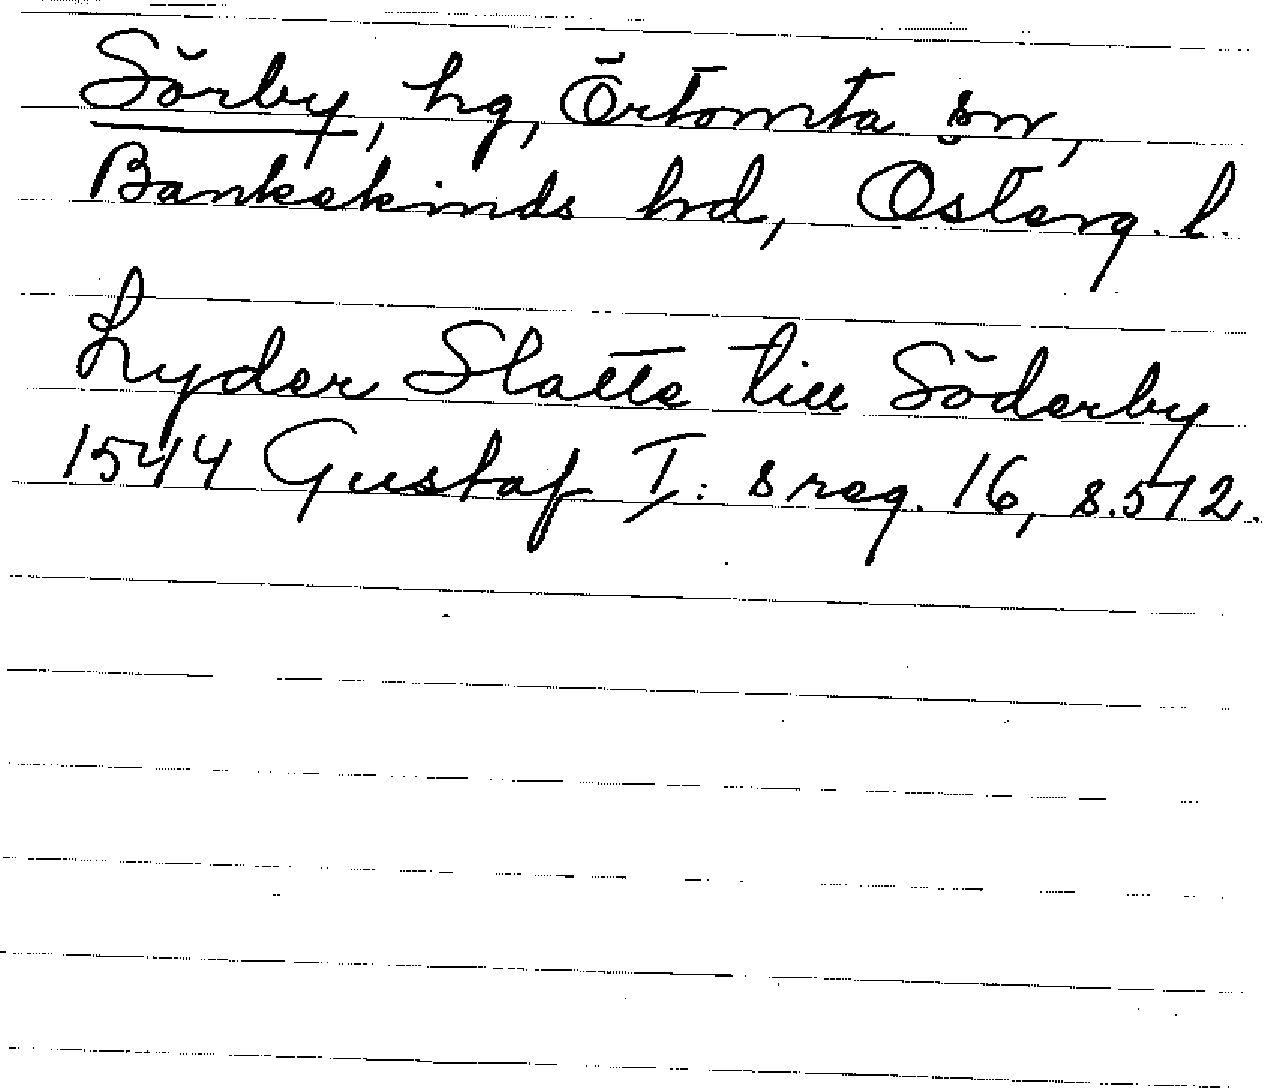 Sörby, hg, Örtomta sn,
Bankekinds hd, Österg. l.
Lyder Slatte till Söderby
1544 Gustaf I:s reg. 16, s.572.